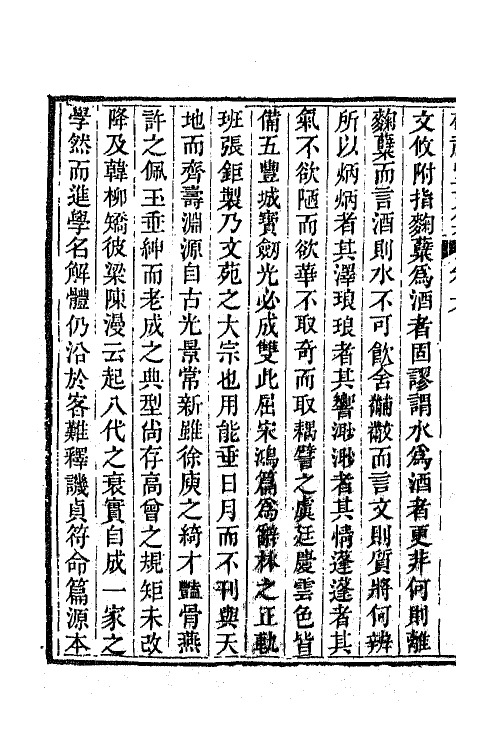 文攸附指麴櫱爲酒者固謬謂水爲酒者更非何則離
麴櫱而言酒則水不可飮舍黼黻而言文則質將何辨
所以炳炳者其澤琅琅者其響渺渺者其情蓬蓬者其
氣不欲陋而欲華不取奇而取耦譬之虞廷慶雲色皆
備五豐城寶劒光必成雙此屈宋鴻篇爲辭林之正軌
班張鉅製乃文苑之大宗也用能垂日月而不刊與天
地而齊壽淵源自古光景常新雖徐庾之綺才豔骨燕
許之佩玉垂紳而老成之典型尙存高曾之規矩未改
降及韓柳矯彼梁陳漫云起八代之衰實自成一家之
學然而進學名解體仍沿於客難釋譏貞符命篇源本